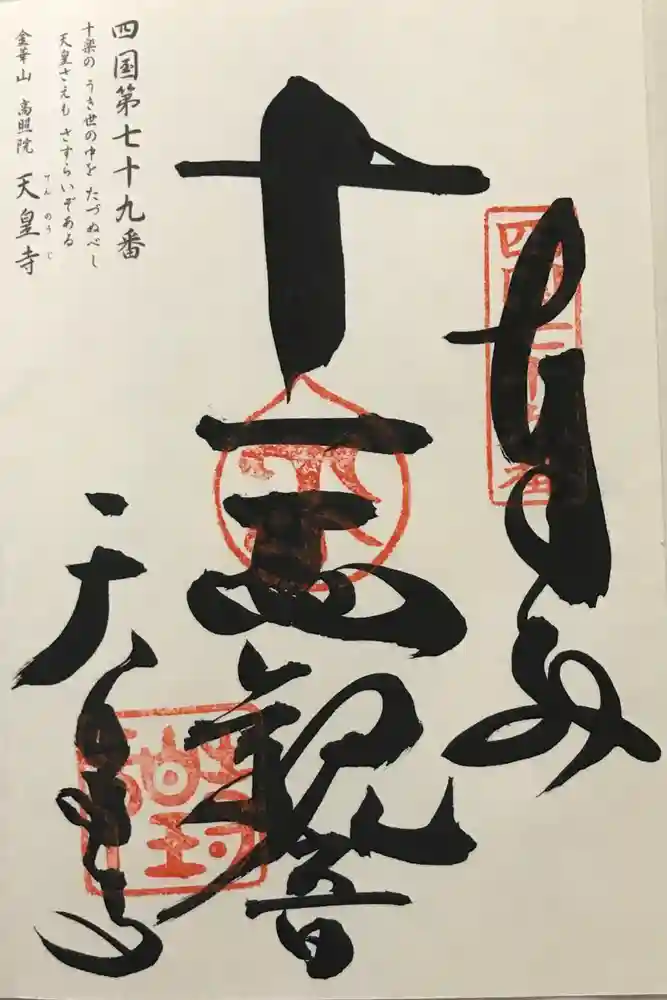 四国第七十九番
十楽の うき世の中を たづぬべし
天皇さえも さすらいぞある
金華山 高照院 天皇寺
てんのうじ
奉納
十一面観音
天皇寺